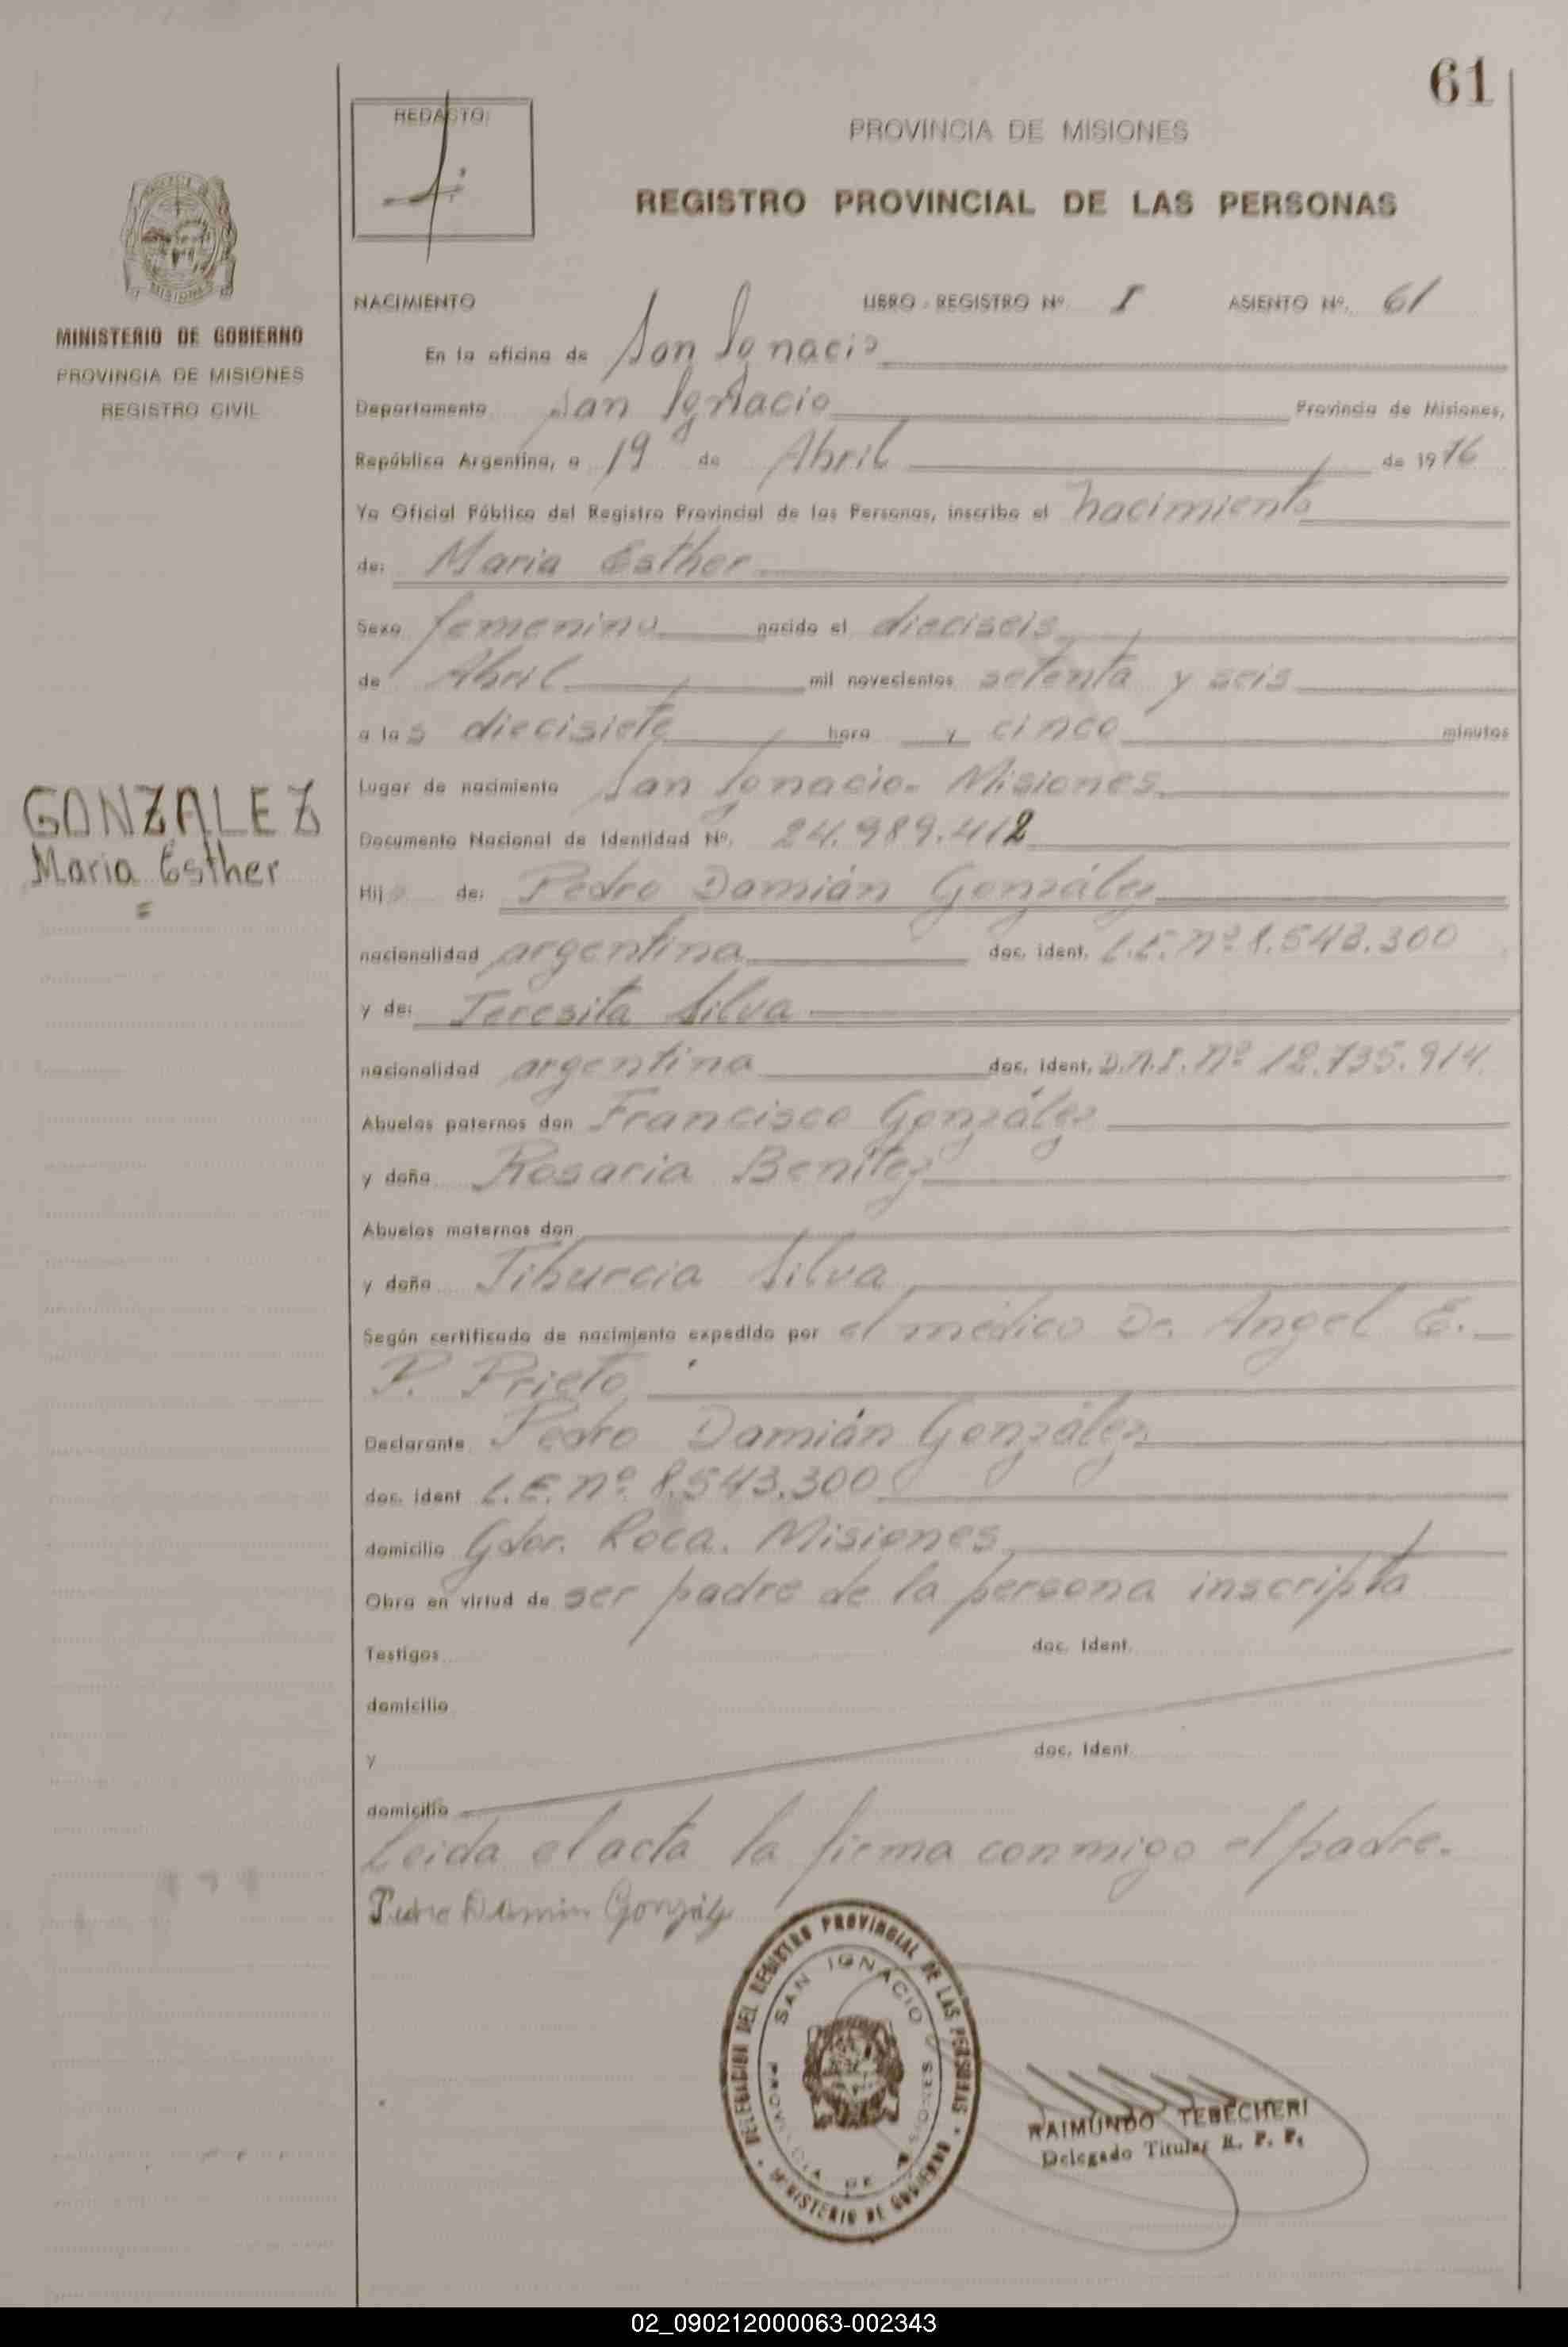 61
REDACTO:
PROVINCIA DE MISIONES
REGISTRO PROVINCIAL DE LAS PERSONAS
MISIONES
MINISTERIO DE GOBIERNO
PROVINCIA DE MISIONES
REGISTRO CIVIL
NACIMIENTO LIBRO - REGISTRO Nº I ASIENTO Nº. 61
En la oficina de San Ignacio
Departamento San Ignacio Provincia de Misiones,
República Argentina, a 19 de Abril de 1976
Yo Oficial Público del Registro Provincial de las Personas, inscribo el nacimiento
de: Maria Esther
Sexo femenino nacido el dieciseis
de Abril mil novecientos setenta y seis
a las diecisiete hora y cinco minutos
Lugar de nacimiento San Ignacio- Misiones
GONZALEZ
Maria Esther
=
Documento Nacional de Identidad Nº. 24.989.412
Hija de: Pedro Damián González
nacionalidad argentina doc. ident. L.E. nº 8.543.300
y de: Teresita Silva
nacionalidad argentina doc. ident. D.N.I. Nº 12.735.914
Abuelos paternos don Francisco González
y doña Rosaria Benítez
Abuelos maternos don
y doña Tiburcia Silva
Según certificado de nacimiento expedido por el médico Dr. Angel E.
P. Prieto
Declarante Pedro Damián González
doc. ident L.E. nº 8.543.300
domicilio Gdor. Roca. Misiones
Obra en virtud de ser padre de la persona inscripta
Testigos doc. ident.
domicilio
y doc. ident.
domicilio
Leida el acta la firma conmigo el padre.
Pedro Damian González
DELEGACION DEL REGISTRO PROVINCIAL DE LAS PERSONAS
SAN IGNACIO
PROVINCIA DE MISIONES
MINISTERIO DE GOBIERNO
RAIMUNDO TEBECHERI
Delegado Titular R. P. P.
02_090212000063-002343